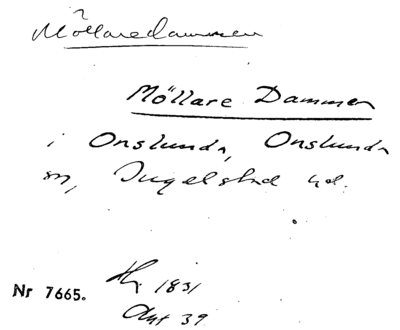 Möllaredammen
Möllare Dammen
i Onslunda, Onslunda
sn, Ingelstad hd.
Hy 1831
Nr 7665.
Akt 39